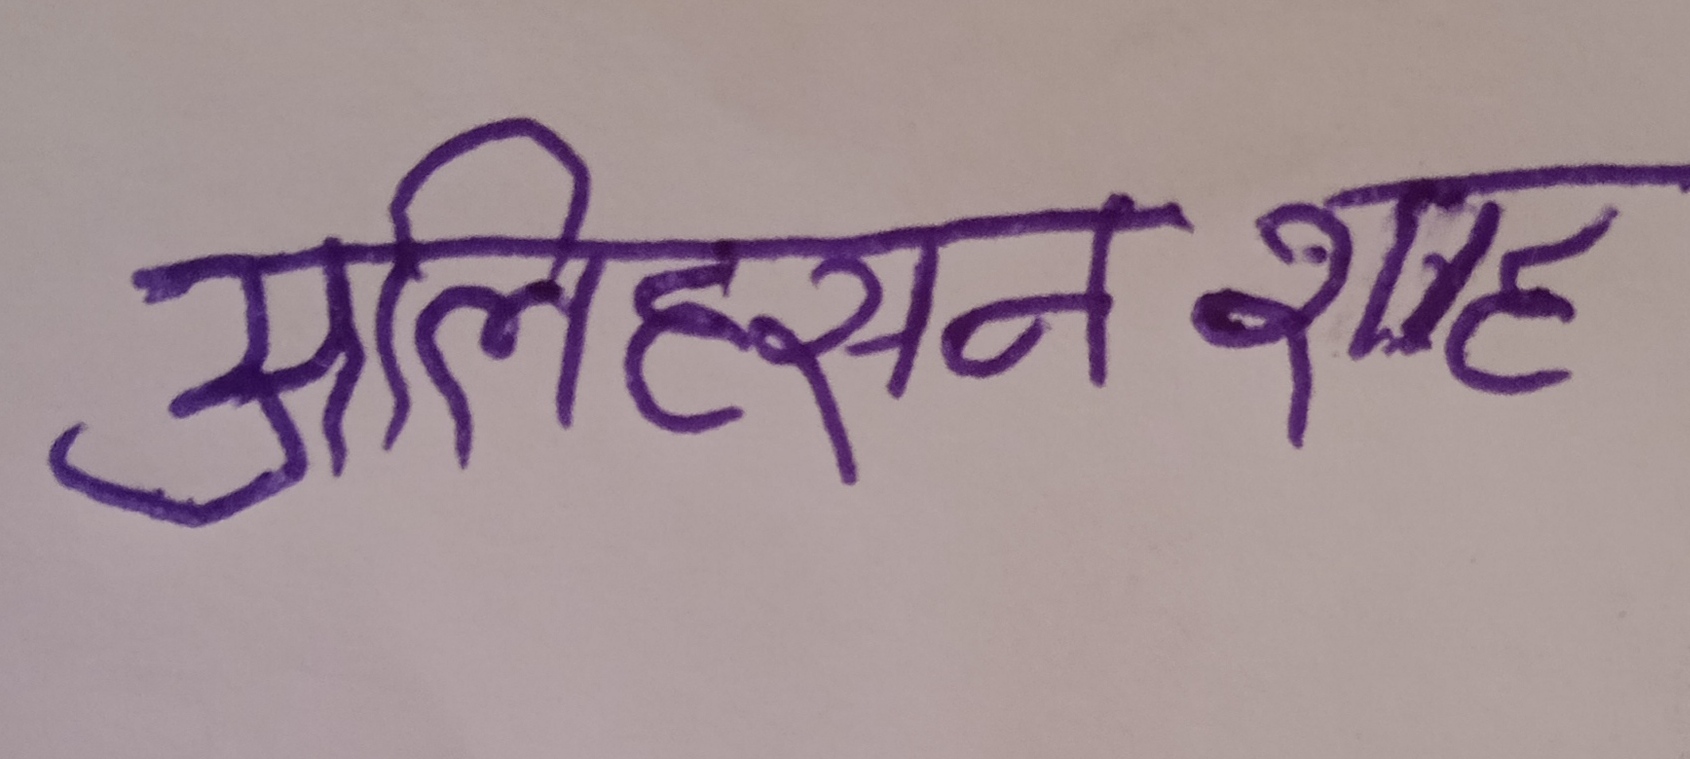 अलिहसन शाह